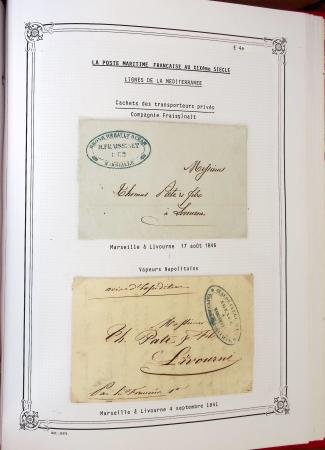 E 4e
LA POSTE MARITIME FRANÇAISE AU XIXème SIECLE
LIGNES DE LA MEDITERRANEE
Cachets des transporteurs privés
Compagnie Fraissinait
MARSEILLE
Messieurs
Thomas Pate & fils
à Livourne
Marseille à Livourne 17 août 1846
Vapeurs Napolitains
Messieurs
Th. Pate & Fils
Livourne
Marseille à Livourne 4 septembre 1841